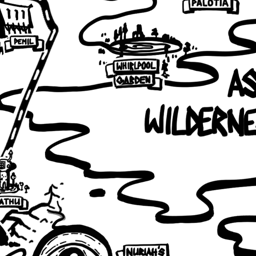 PALOTIA
DEHIL
WHIRLPOOL
GARDEN
AS
WILDERNE
ATHU
NURIAH'S